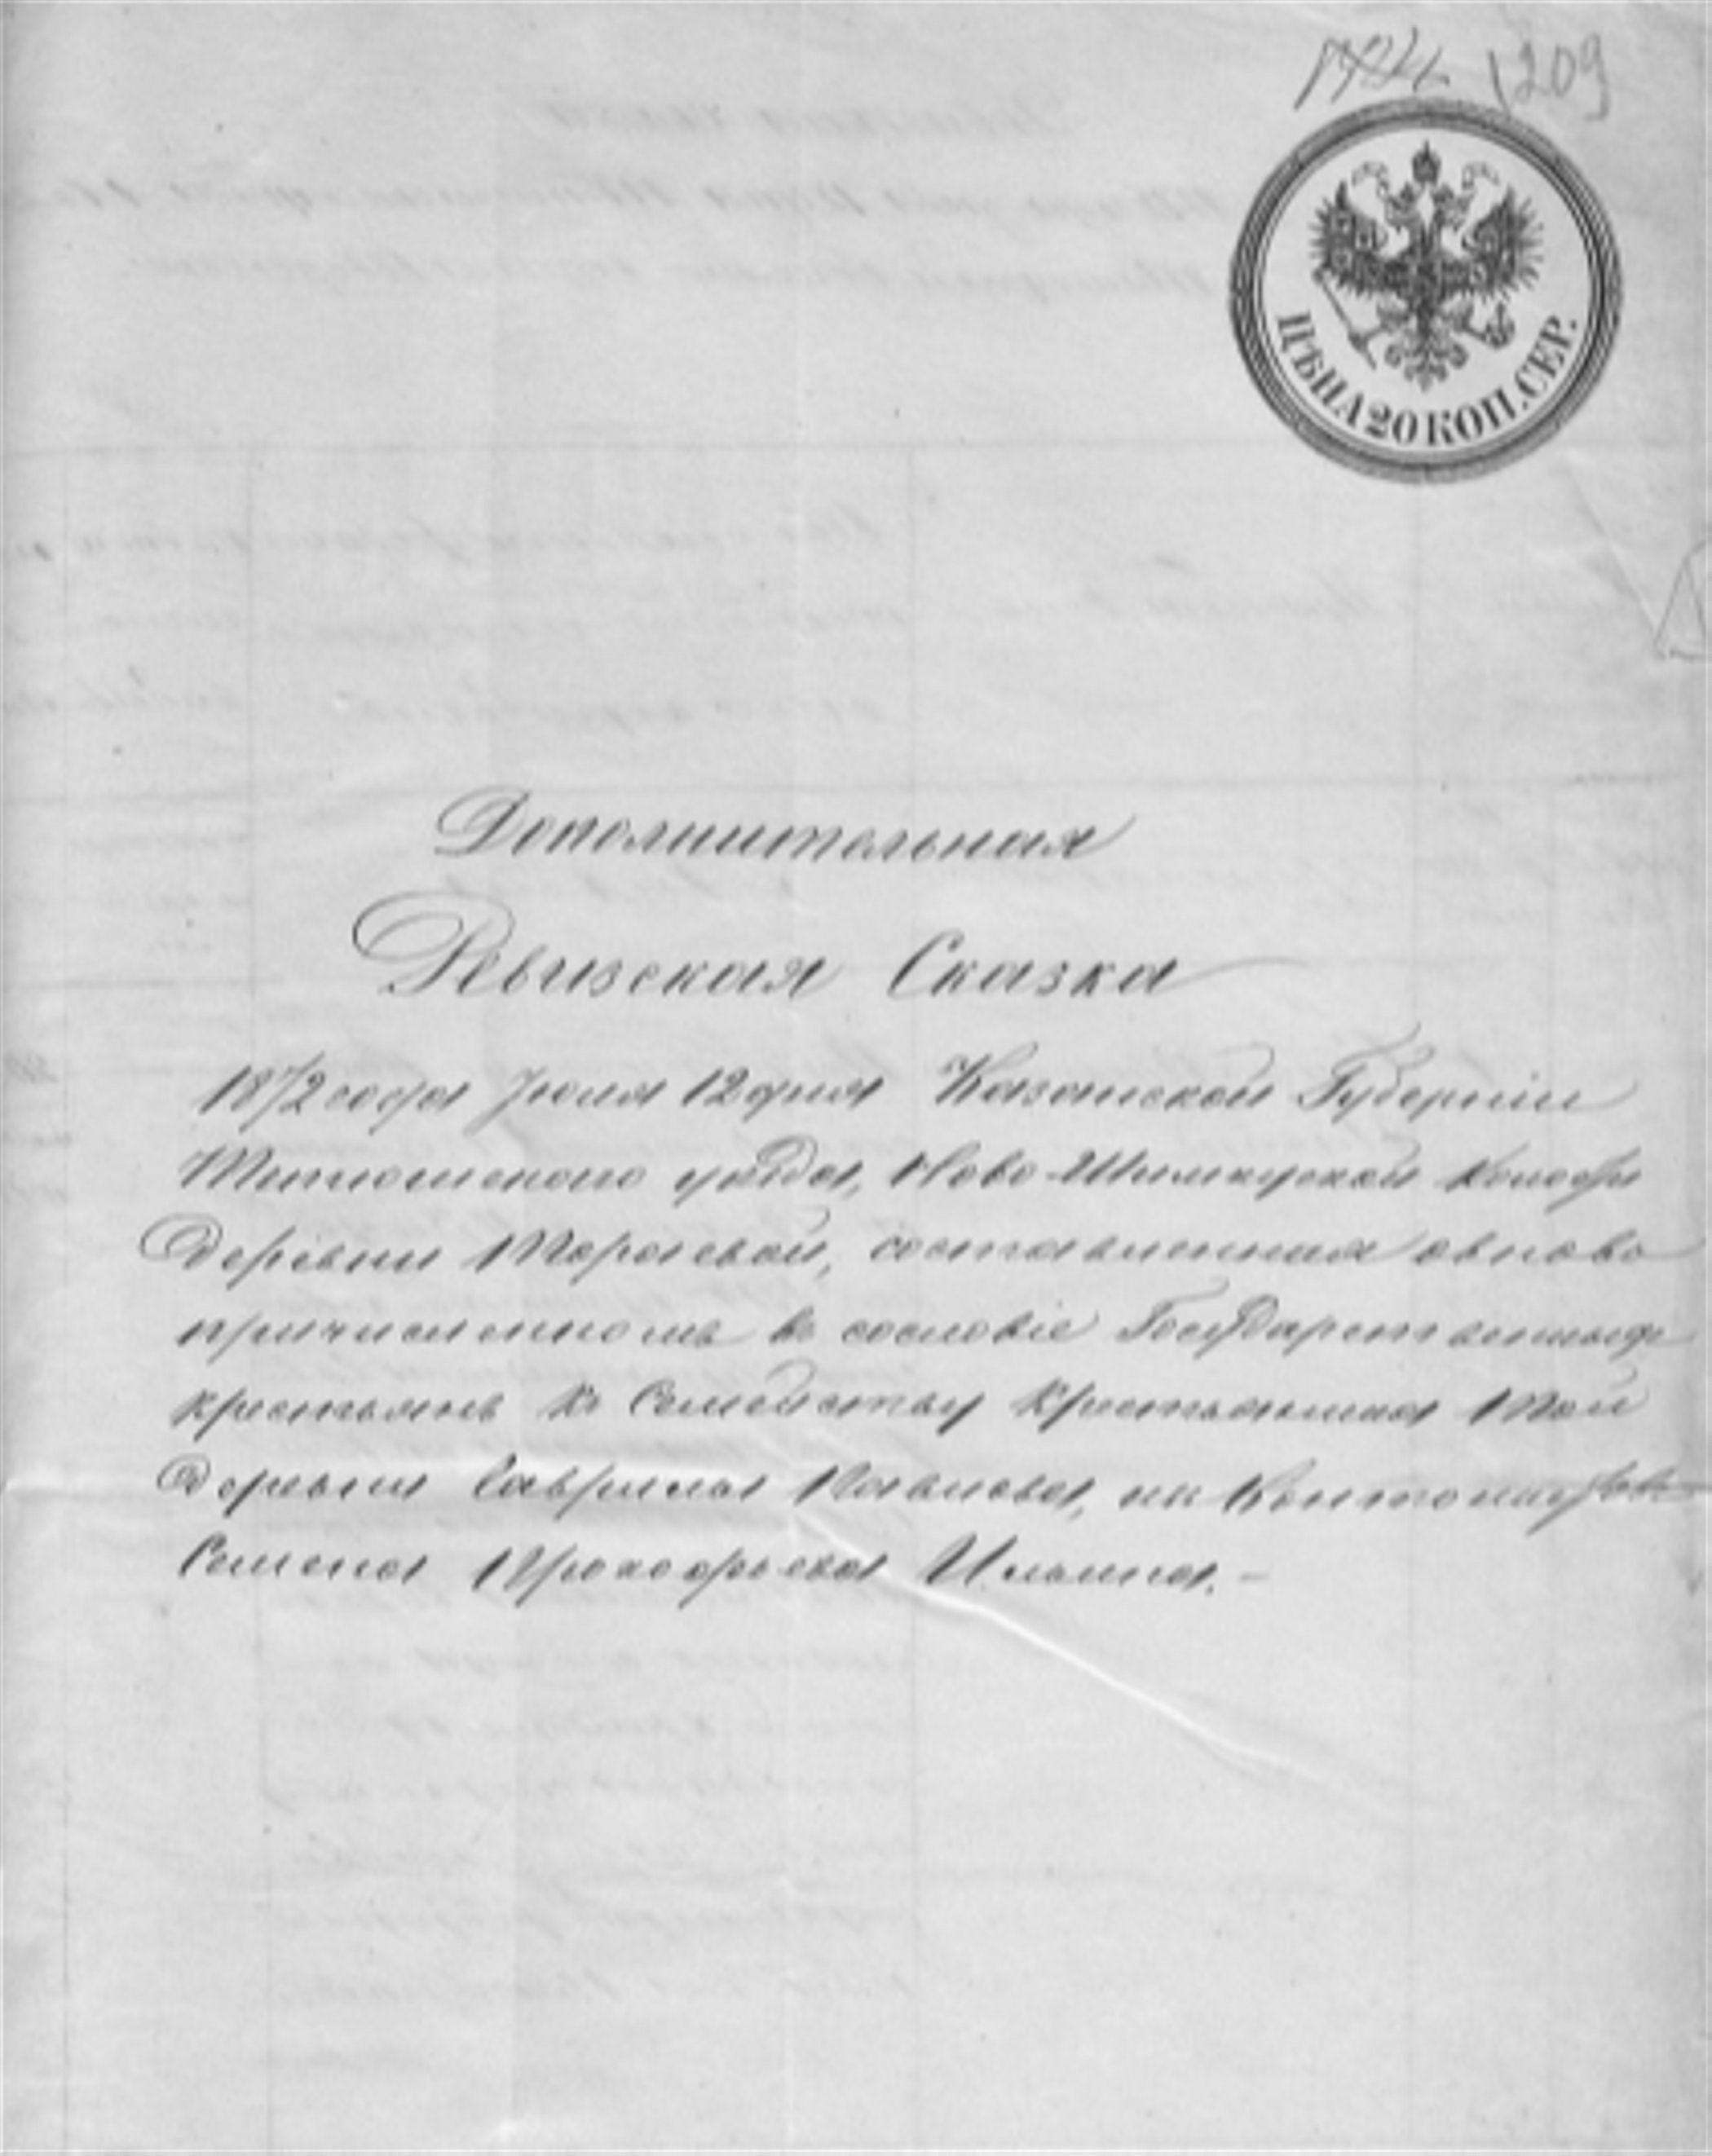 1209
ЦѢНА 20 КОП. СЕР.
Дополнительная
Ревизская Сказка
1872 года Июля 12 дня Казанской Губерніи
уѣзда, Ново-Шимкусской Волости
Деревни Тораевой, составленная о вновь
причисленномъ въ сословіе Государственныхъ
крестьянъ къ Семейству Крестьянина той
деревни Гаврилы Павлова, из Кантонистовъ
Семена Прокофьева Ильина. —